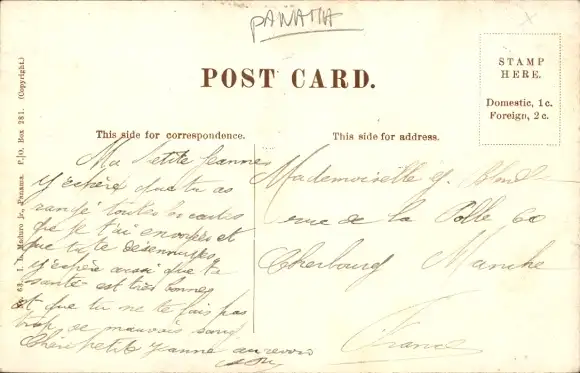 PANAMA
POST CARD.
STAMP
HERE.
Domestic, 1 c.
Foreign, 2 c.
63. I. L. Maduro Jr., Panama. P.O. Box 281. (Copyright.)
This side for correspondence.
Ma Petite Jeanne
J'éspère que tu as
rangé toutes les cartes
que je t'ai envoyés et
que tu te désennuyes
J'éspère aussi que ta
santé est très bonnes
et que tu ne te fais pas
trop de mauvais sang
Chère petite Jeanne au revoir
This side for address.
Mademoiselle J.
rue de la Polle 60
Cherbourg Manche
France